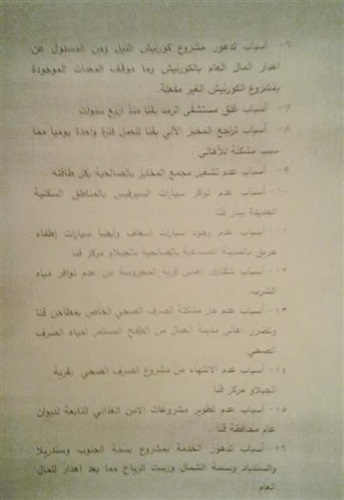 ٦- أسباب تدهور مشروع كورنيش النيل ومن المسئول عن
اهدار المال العام بالكورنيش وما موقف المعدات الموجودة
بمشروع الكورنيش الغير مفعلة.
٧- أسباب غلق مستشفى الرمد بقنا منذ اربع سنوات
٨- أسباب تراجع المخبز الآلي بقنا للعمل فترة واحدة يومياً مما
سبب مشكلة للأهالى
٩- أسباب عدم تشغيل مجمع المخابز بالصالحية بكل طاقته .
١٠- أسباب عدم توافر سيارات السيرفيس بالمناطق السكنية
الجديدة ببندر قنا
١١- أسباب عدم وجود سيارات اسعاف وايضاً سيارات إطفاء
حريق بالمدينة الصناعية بالصالحية بالجبلاو مركز قنا .
١٢- أسباب شكاوى اهالى قرية المحروسة من عدم توافر مياه
الشرب.
١٣- أسباب عدم حل مشكلة الصرف الصحي الخاص بمطاحن قنا
وتضرر اهالى مدينة العمال من الطفح المستمر لمياه الصرف
الصحي.
١٤- أسباب عدم الانتهاء من مشروع الصرف الصحي بقرية
الجبلاو مركز قنا
١٥- أسباب عدم تطوير مشروعات الامن الغذائي التابعة لديوان
عام محافظة قنا .
١٦- أسباب تدهور الخدمة بمشروع بسمة الجنوب وسندريلا
والسندباد ونسمة الشمال وريست الرياح مما يعد اهدار للمال
العام .